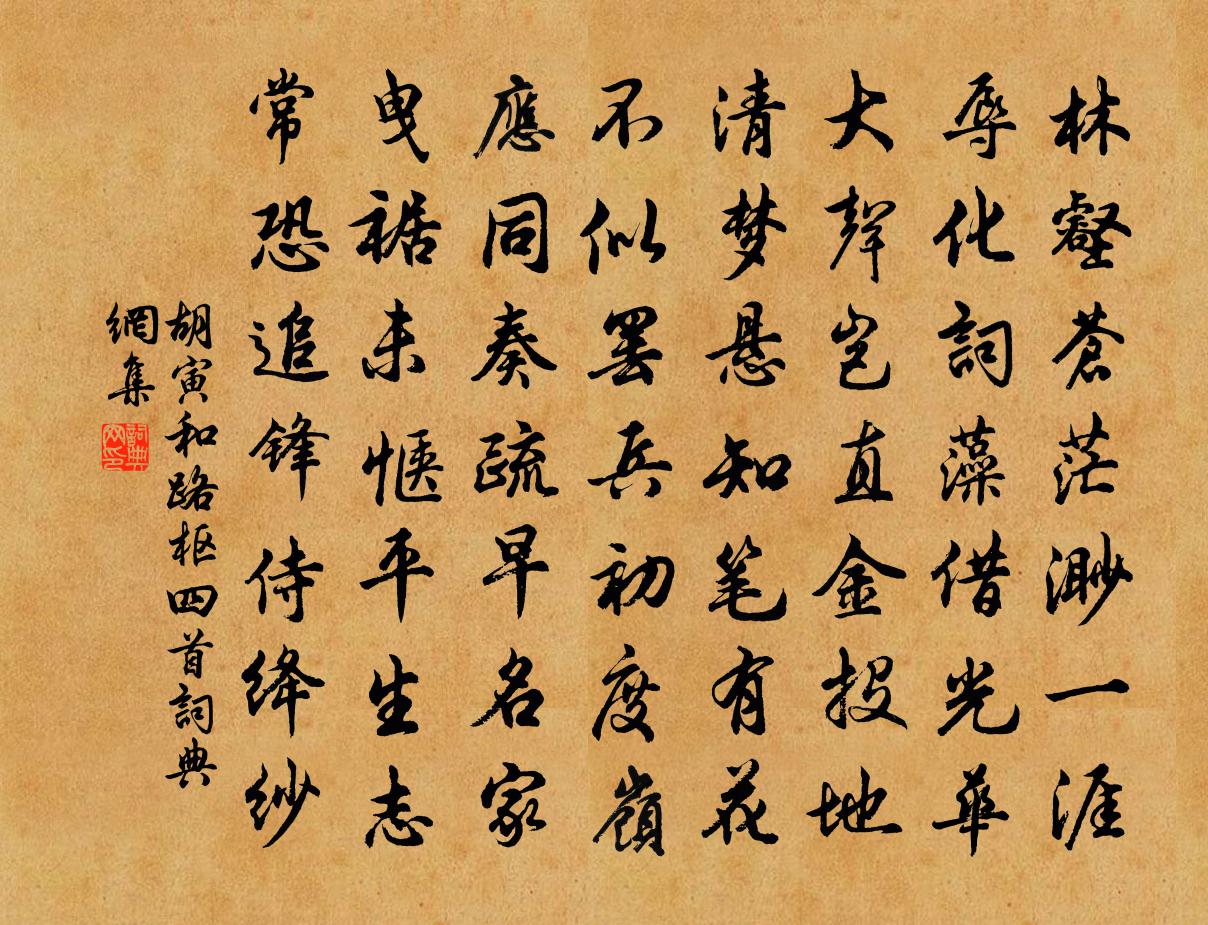 林壑蒼茫渺一涯
辱化詞藻借光華
大聲豈直金投地
清梦悬知笔有花
不似罢兵初度嶺
應同奏疏早名家
曳裾未惬平生志
常恐追鋒侍绛纱
胡寅和路枢四首詞典
網集
詞典
网印